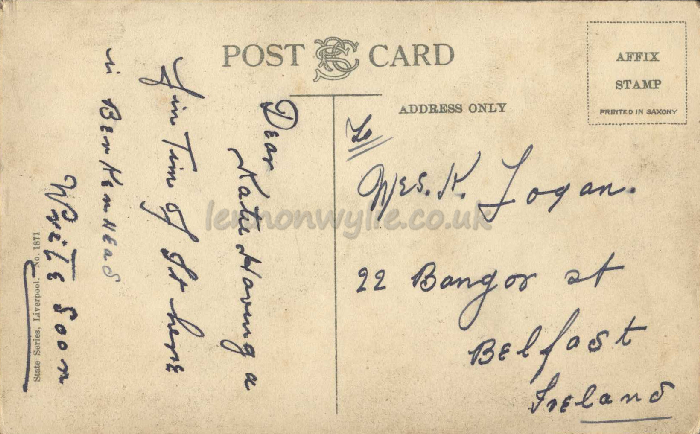 POST CARD
AFFIX
STAMP
PRINTED IN SAXONY
ADDRESS ONLY
To
Mrs. K. Logan.
22 Bangor st
Belfast
Ireland
Dear
Katie Having a
Fin Time of It here
in BerKenHead
Write Soon
State Series, Liverpool. No. 1871
lennonwylie.co.uk